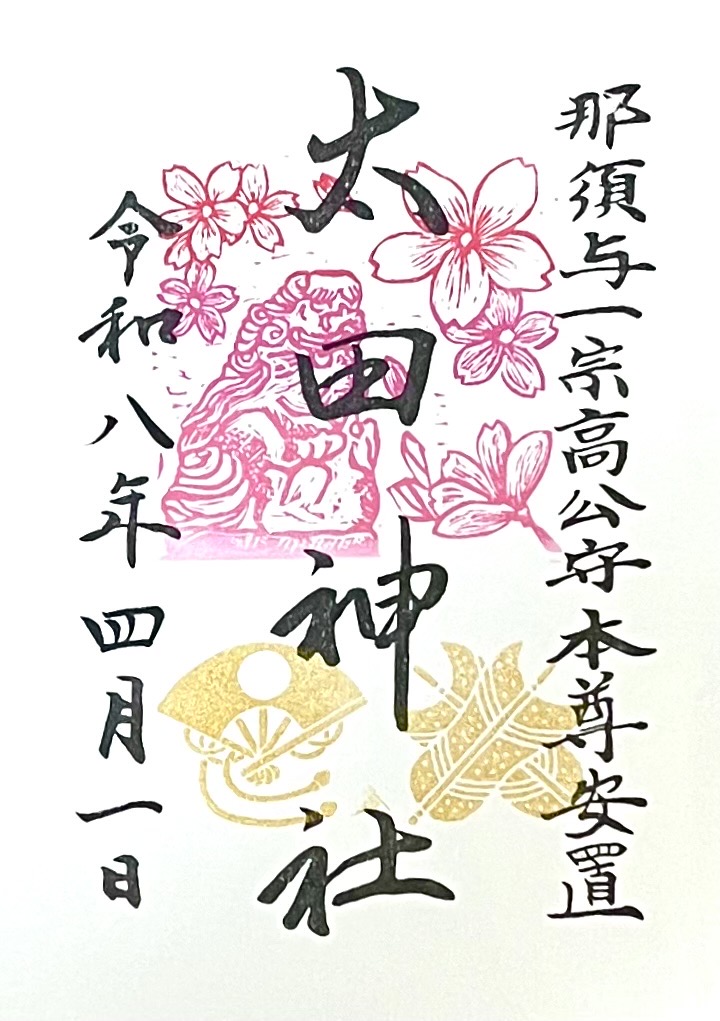 那須与一宗高公守本尊安置
太田神社
令和八年四月一日